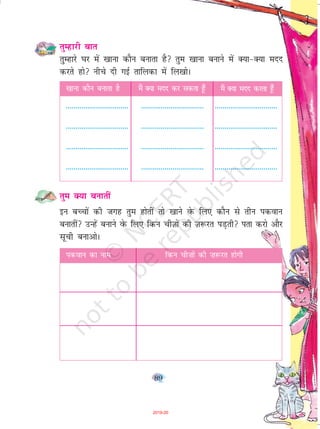 तुम्हारी बात
तुम्हारे घर में खाना कौन बनाता है? तुम खाना बनाने में क्या-क्या मदद
करते हो? नीचे दी गई तालिका में लिखो।
खाना कौन बनाता है मैं क्या मदद कर सकता हूँ मैं क्या मदद करता हूँ
तुम क्या बनातीं
इन बच्चों की जगह तुम होतीं तो खाने के लिए कौन से तीन पकवान
बनातीं? उन्हें बनाने के लिए किन चीज़ों की ज़रूरत पड़ती? पता करो और
सूची बनाओ।
पकवान का नाम किन चीज़ों की ज़रूरत होगी
© NCERT
not to be republished
89
2019-20